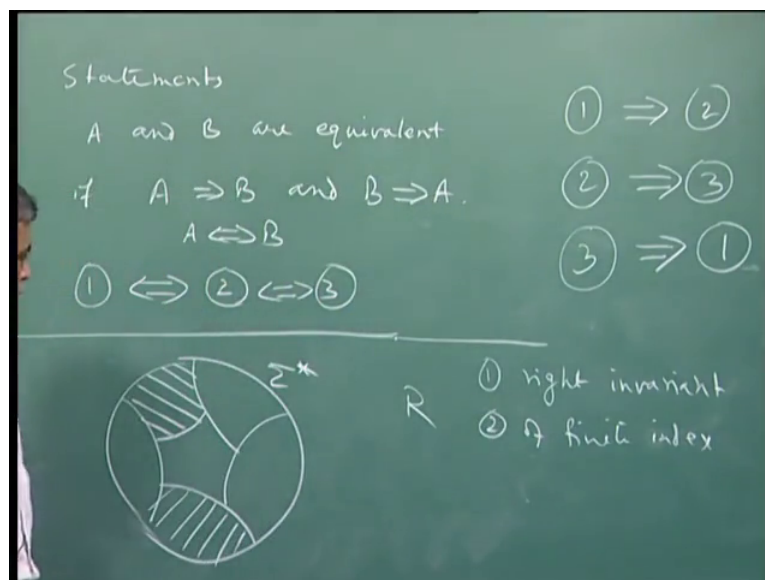 Statements
A and B are equivalent
if A ⇒ B and B ⇒ A.
A ⇔ B
① ⇔ ② ⇔ ③
① ⇒ ②
② ⇒ ③
③ ⇒ ①
Σ*
R
① right invariant
② of finite index